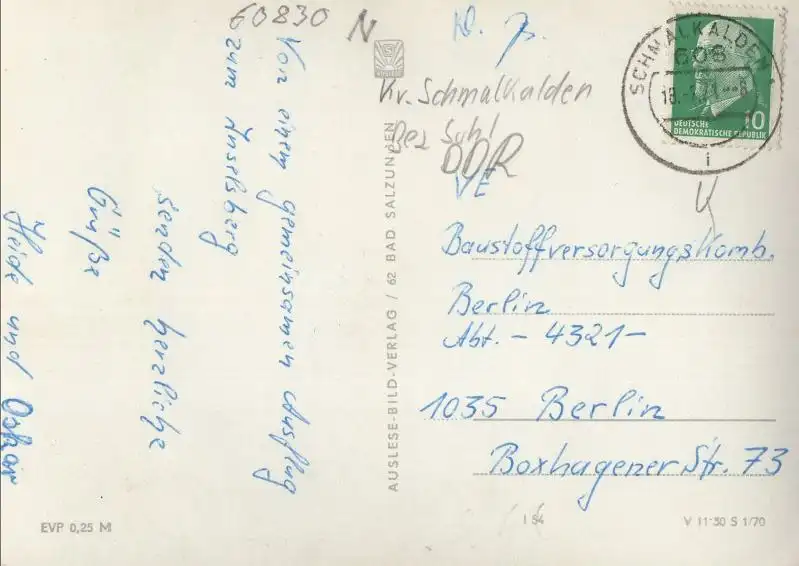 60830 N
Von einem gemeinsamen Ausflug
zum Inselsberg
senden herzliche
Grüße
Heide und Oskar
Kr. Schmalkalden
Bez Suhl
DDR
SCHMALKALDEN 1
608
i
DEUTSCHE
DEMOKRATISCHE REPUBLIK
10
VE
Baustoffversorgungskomb.
Berlin
Abt. - 4321 -
1035 Berlin
Boxhagener Str. 73
AUSLESE-BILD-VERLAG / 62 BAD SALZUNGEN
EVP 0,25 M
V 11-50 S 1/70